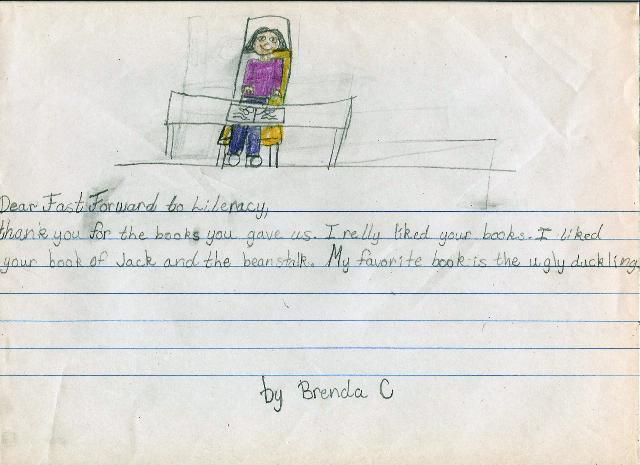 Dear Fast Forward to Literacy,
thank you for the books you gave us. I relly liked your books. I liked
your book of Jack and the beanstalk. My favorite book is the ugly duckling.
by Brenda C